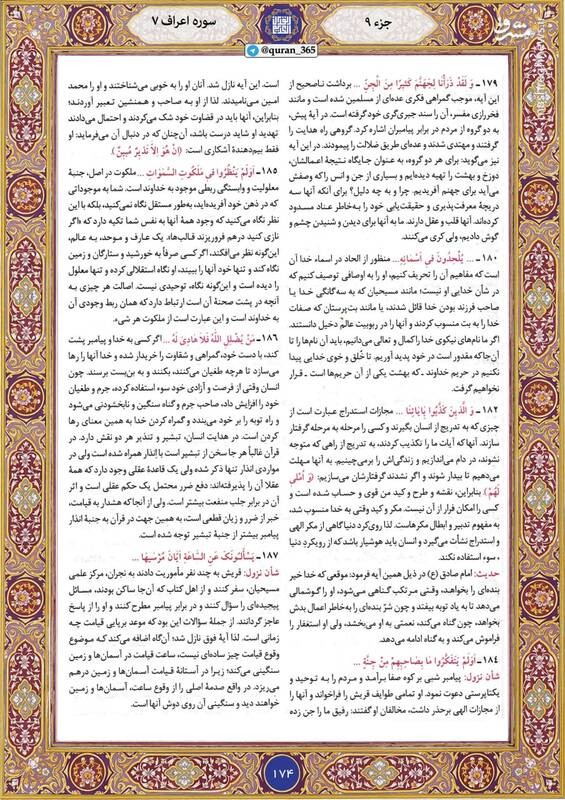 جزء ۹
سوره اعراف ۷
@quran_365
مشرق
۱۷۹ ـ وَ لَقَدْ ذَرَأْنَا لِجَهَنَّمَ كَثِيرًا مِنَ الْجِنِّ ... برداشت ناصحیح از
این آیه، موجب گمراهی فکری عده‌ای از مسلمین شده است و مانند
فخررازی مفسر، آن را سند جبری‌گری خود گرفته است. در آیهٔ پیش،
به دو گروه از مردم در برابر پیامبران اشاره کرد. گروهی راه هدایت را
گرفتند و مهتدی شدند و عده‌ای طریق ضلالت را پیمودند. در این آیه
نیز می‌گوید: برای هر دو گروه، به عنوان جایگاه نتیجهٔ اعمالشان،
دوزخ و بهشت را تهیه دیده‌ایم و بسیاری از جن و انس را که وصفش
می‌آید برای جهنم آفریدیم. چرا و به چه دلیل؟ برای آنکه آنها سه
دریچهٔ معرفت‌پذیری و حقیقت‌یابی خود را به‌خاطر عناد مسدود
کرده‌اند. آنها قلب و عقل دارند. ما به آنها برای دیدن و شنیدن چشم و
گوش دادیم، ولی کری می‌کنند.
۱۸۰ ـ ... يُلْحِدُونَ فِي أَسْمَائِهِ ... منظور از الحاد در اسماء خدا آن
است که مفاهیم آن را تحریف کنیم، او را به اوصافی توصیف کنیم که
در شأن خدایی او نیست؛ مانند مسیحیان که به سه‌گانگی خدا یا
صاحب فرزند بودن خدا قائل شدند، یا مانند بت‌پرستان که صفات
خدا را به بت منسوب کردند و آنها را در ربوبیت عالم دخیل دانستند.
اگر ما نام‌های نیکوی خدا را کمال و تعالی می‌دانیم، باید آن نام‌ها را تا
آن‌جا که مقدور است در خود پدید آوریم. تا خُلق و خوی خدایی پیدا
نکنیم در حریم خداوند ـ که بهشت یکی از آن حریم‌ها است ـ قرار
نخواهیم گرفت.
۱۸۲ ـ وَ الَّذِينَ كَذَّبُوا بِآيَاتِنَا ... مجازات استدراج عبارت است از
چیزی که به تدریج از انسان بگیرند و کسی را مرحله به مرحله گرفتار
سازند. آنها که آیات ما را تکذیب کردند، به تدریج از راهی که متوجه
نشوند، در دام می‌اندازیم و زندگی‌اش را برمی‌چینیم. به آنها مهلت
می‌دهیم تا بیدار شوند و اگر نشدند گرفتارشان می‌سازیم: (وَ أُمْلِي
لَهُمْ). بنابراین، نقشه و طرح و کید من قوی و حساب شده است و
کسی را امکان فرار از آن نیست. مکر و کید وقتی به خدا منسوب شد،
به مفهوم تدبیر و ابطال مکرهاست. لذا رویکرد دنیا گاهی از مکر الهی
و استدراج نشأت می‌گیرد و انسان باید هوشیار باشد که از رویکرد دنیا
، سوء استفاده نکند.
حدیث: امام صادق (ع) در ذیل همین آیه فرمود: موقعی که خدا خیر
بنده‌ای را بخواهد، وقتی مرتکب گناهی می‌شود، او را گوشمالی
می‌دهد تا به یاد توبه بیفتد و چون شرّ بنده‌ای را به خاطر اعمال بدش
بخواهد، چون گناهی می‌کند، نعمتی به او می‌بخشد، ولی او استغفار را
فراموش می‌کند و به گناه ادامه می‌دهد.
۱۸۴ ـ أَوَلَمْ يَتَفَكَّرُوا مَا بِصَاحِبِهِمْ مِنْ جِنَّةٍ ...
شأن نزول: پیامبر شبی بر کوه صفا برآمد و مردم را به توحید و
یکتاپرستی دعوت نمود. او تمامی طوایف قریش را فراخواند و آنها را
از مجازات الهی برحذر داشت، مخالفان او گفتند: رفیق ما را جن زده
است. این آیه نازل شد. آنان او را به خوبی می‌شناختند و او را محمد
امین می‌نامیدند. لذا از او به صاحب و همنشین تعبیر آوردند؛
بنابراین، آنها باید در قضاوت خود شک می‌کردند و احتمال می‌دادند
تهدید او شاید درست باشد، آن‌چنان که در دنبال آن می‌فرماید: او
فقط بیم‌دهندهٔ آشکاری است: (إِنْ هُوَ إِلَّا نَذِيرٌ مُبِينٌ).
۱۸۵ ـ أَوَلَمْ يَنْظُرُوا فِي مَلَكُوتِ السَّمٰوَاتِ ... ملکوت در اصل، جنبهٔ
معلولیت و وابستگی ربطی موجود به خداوند است. شما به موجوداتی
که در ذهن خود آفریده‌اید، به‌طور مستقل نگاه نمی‌کنید، بلکه با این
نظر نگاه می‌کنید که وجود همهٔ آنها به نفس شما تکیه دارد که «اگر
نازی کنید درهم فروریزند قالب‌ها». یک عارف و موحد، به عالم،
این‌گونه نظر می‌افکند، اگر کسی صرفاً به خورشید و ستارگان و زمین
نگاه کند و تنها خود آنها را ببیند، او نگاه استقلالی کرده و تنها معلول
را دیده است و این‌گونه نگاه، توحیدی نیست. اصالت هر چیزی به
آنچه در پشت صحنهٔ آن است ارتباط دارد که همان ربط وجودی آن
به خداوند است و این عبارت است از ملکوت هر شیء.
۱۸۶ ـ مَنْ يُضْلِلِ اللَّهُ فَلَا هَادِيَ لَهُ ... اگر کسی به خدا و پیامبر پشت
کند، با دست خود، گمراهی و شقاوت را خریدار شده و خدا آنها را رها
می‌سازد تا هرچه طغیان می‌کنند، بکنند و به بن‌بست برسند. چون
انسان وقتی از فرصت و آزادی خود سوء استفاده کرده، جرم و طغیان
خود را افزایش داد، صاحب جرم و گناه سنگین و نابخشودنی می‌شود
و راه توبه را بر خود می‌بندد و گمراه کردن خدا به همین معنای رها
کردن است. در هدایت انسان، تبشیر و تنذیر هر دو نقش دارد. در
قرآن غالباً هر جا سخن از تبشیر است با انذار همراه شده است ولی در
مواردی انذار تنها ذکر شده ولی یک قاعدهٔ عقلی وجود دارد که همهٔ
عقلا آن را پذیرفته‌اند: دفع ضرر محتمل یک حکم عقلی است و اثر
آن در برابر جلب منفعت بیشتر است. ولی از آنجا که هشدار به قیامت،
خبر از ضرر و زیان قطعی است، به همین جهت در قرآن به جنبهٔ انذار
پیامبر بیشتر از جنبهٔ تبشیر توجه شده است.
۱۸۷ ـ يَسْأَلُونَكَ عَنِ السَّاعَةِ أَيَّانَ مُرْسٰيهَا ...
شأن نزول: قریش به چند نفر مأموریت دادند به نجران، مرکز علمی
مسیحیان، سفر کنند و از اهل کتاب که آن‌جا ساکن بودند، مسائل
پیچیده‌ای را سؤال کنند و در برابر پیامبر مطرح کنند و او را از پاسخ
عاجز گردانند. از جملهٔ سؤالات این بود که موعد برپایی قیامت چه
زمانی است. لذا آیهٔ فوق نازل شد؛ آن‌گاه اضافه می‌کند که موضوع
وقوع قیامت چیز ساده‌ای نیست، ساعت قیامت در آسمان‌ها و زمین
سنگینی می‌کند؛ زیرا در آستانهٔ قیامت آسمان‌ها و زمین درهم
می‌ریزد. در واقع صدمهٔ اصلی را از وقوع ساعت، آسمان‌ها و زمین
خواهند دید و سنگینی آن روی دوش آنها است.
۱۷۴